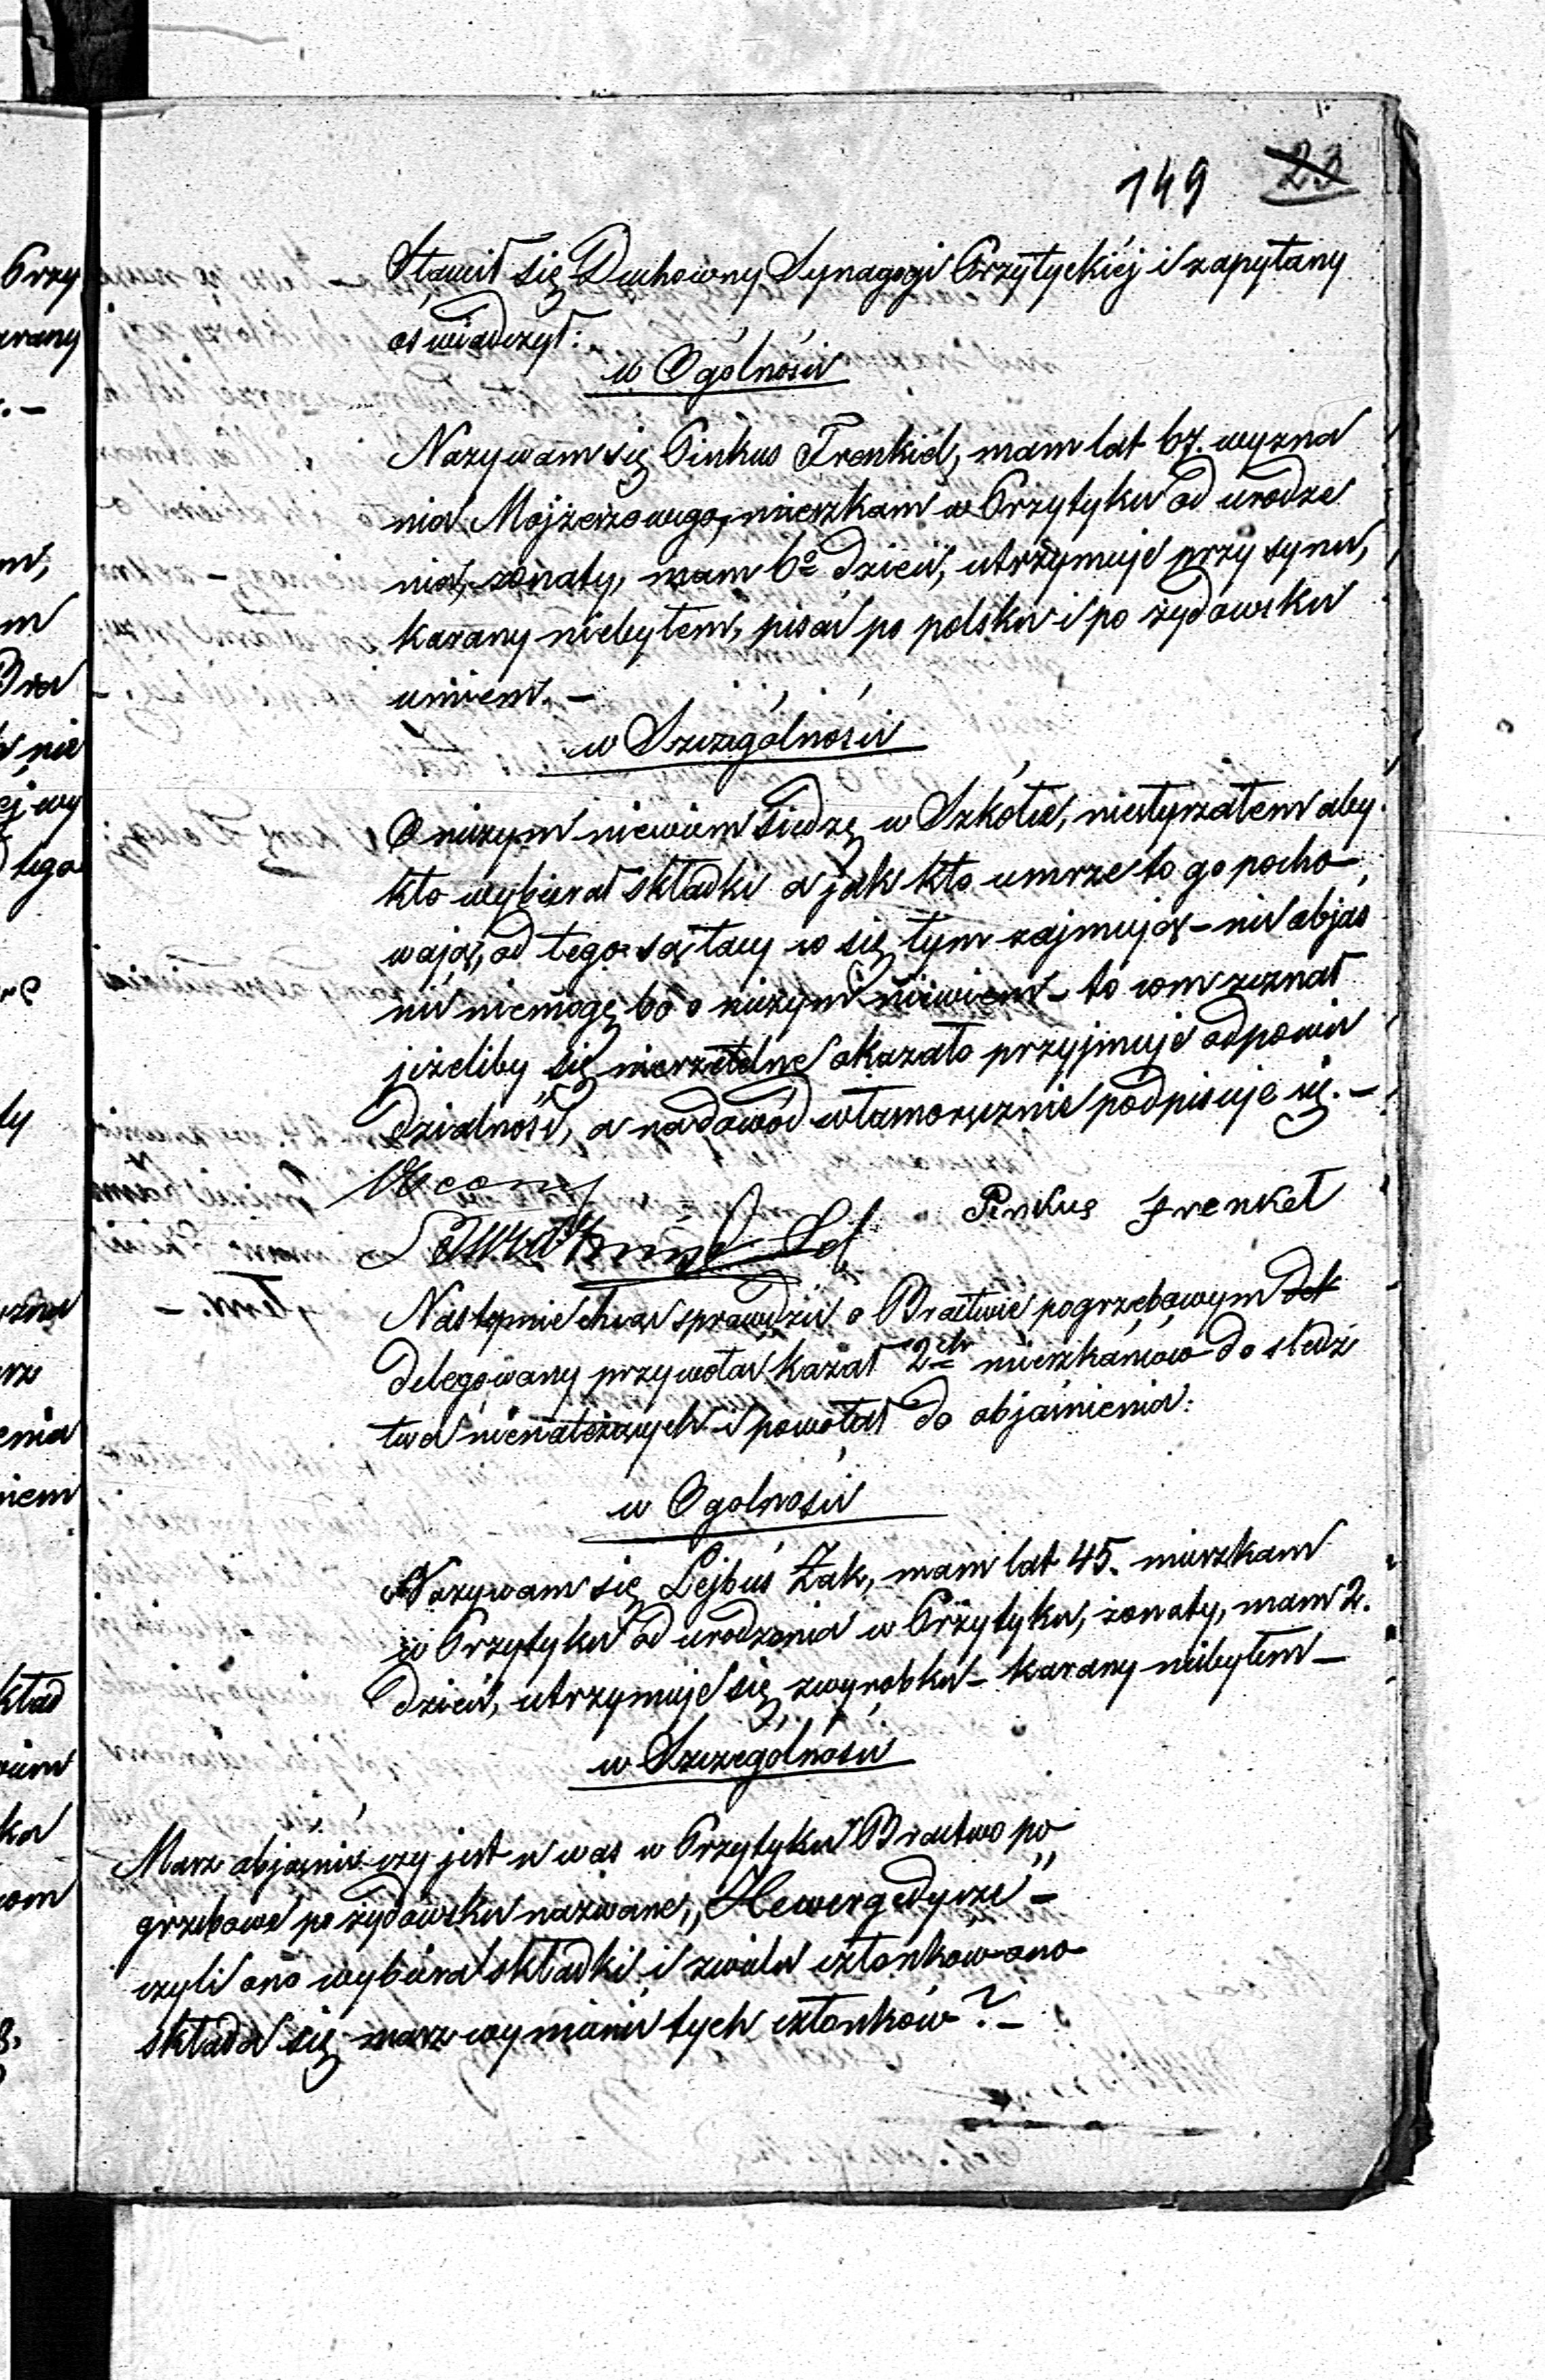 149 23
Stawił się Duchowny Synagogi Przytyckiéj i zapytany
oświadczył:
w Ogólności
Nazywam się Pinkus Frenkiel, mam lat 67. wyzna
nia Mojżeszowego, mieszkam w Przytyku od urodze
nia, żonaty, mam 6º dzieci, utrzymuje przy synu,
karany niebyłem, pisać po polsku i po żydowsku
umiem. –
w Szczególności
O niczym niewiem siedzę w Szkole, niesłyszałem aby
kto wybierał składki a jak kto umrze to go pocho
wają, od tego są tacy co się tym zajmują – nic objaś
nić niemogę bo o niczym niewiem – to com zeznał
jeżeliby się nierzetelne okazało przyjmuje odpowie
dzialność, a na dowód własnoręcznie podpisuje się. –
Pinkus Frenkel
Następnie chcąc sprawdzić o Bractwie pogrzebowym
delegowany przywołać kazał 2ch mieszkańców do śledz
twa nienależących i powołał do objaśnienia:
w Ogolności
Nazywam się Lejbuś Żak, mam lat 45. mieszkam
w Przytyku od urodzenia w Przytyku, żonaty, mam 2.
dzieci, utrzymuje się zwyrobku – karany niebyłem –
w Szczególności
Masz objaśnić czy jest u was w Przytyku Bractwo po
grzebowe po żydowsku nazwane „Hewergedysze" –
czyli ono wybiera składki i zwielu członkow ono
składa się masz wymienić tych członków? –